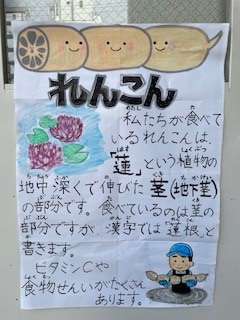 れんこん
私たちが食べて
いるれんこんは、
「蓮」という植物の
地中深くで伸びた茎(地下茎)
の部分です。食べているのは茎の
部分ですが、漢字では「蓮根」と
書きます。
ビタミンCや
食物せんいがたくさん
あります。